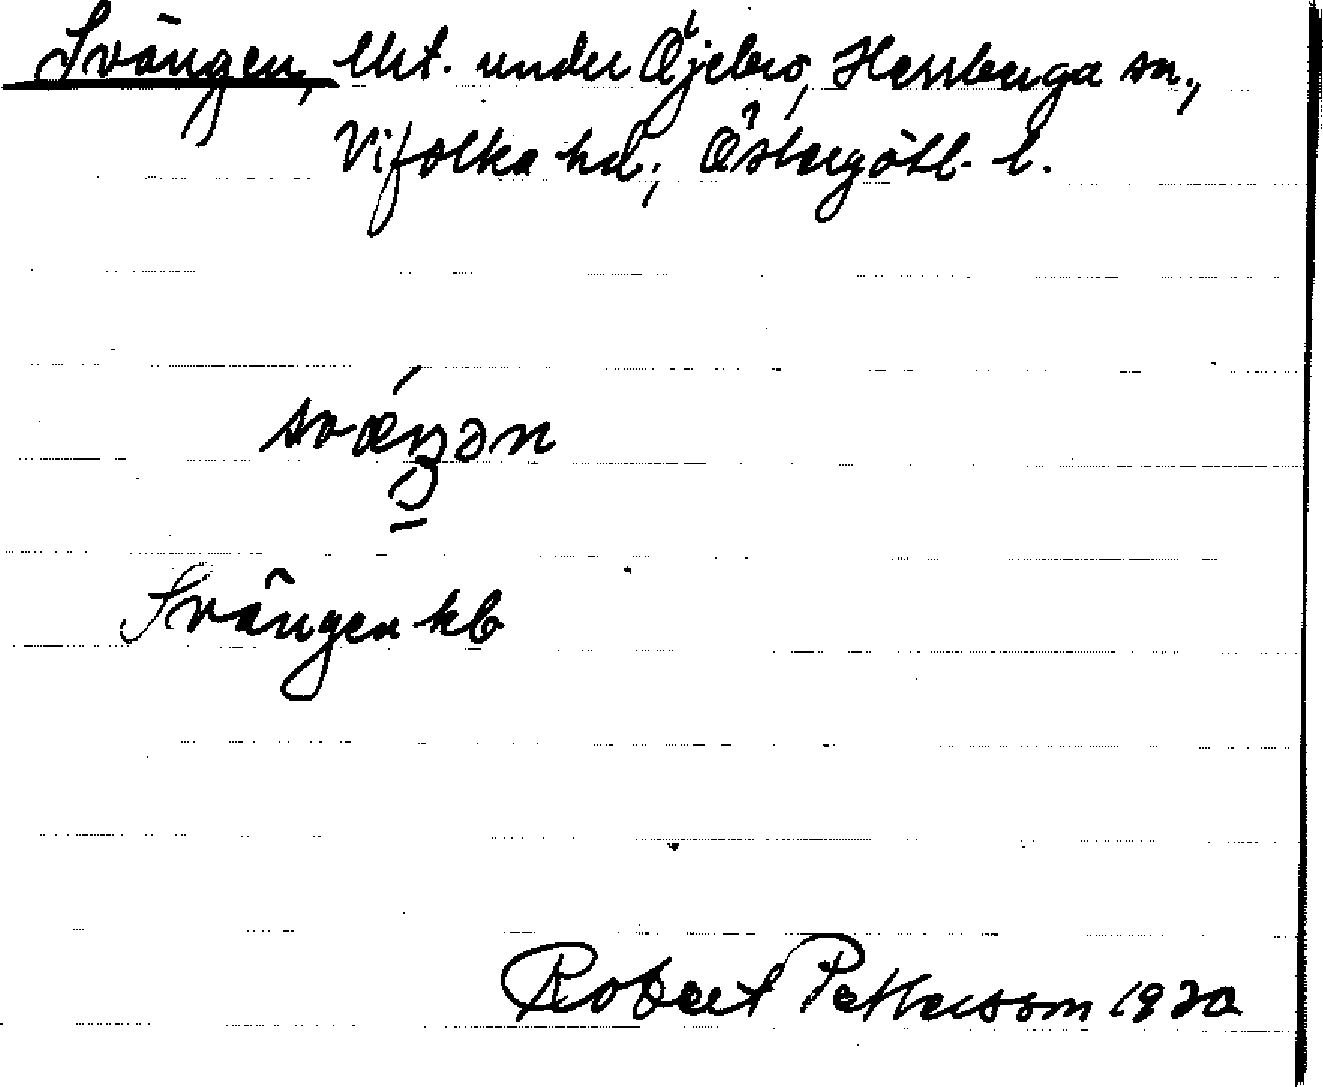 Svängen, lht. under Öjebro, Herrberga sn.,
Vifolka hd., Östergötl. l.
Svängen kb
Robert Pettersson 1920